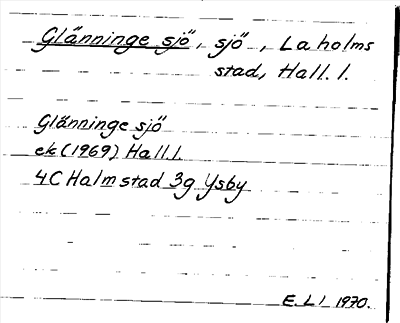 Glänninge sjö, sjö, Laholms
stad, Hall. l.
Glänninge sjö
ek (1969) Hall.l.
4C Halmstad 3g Ysby
E.L! 1970.